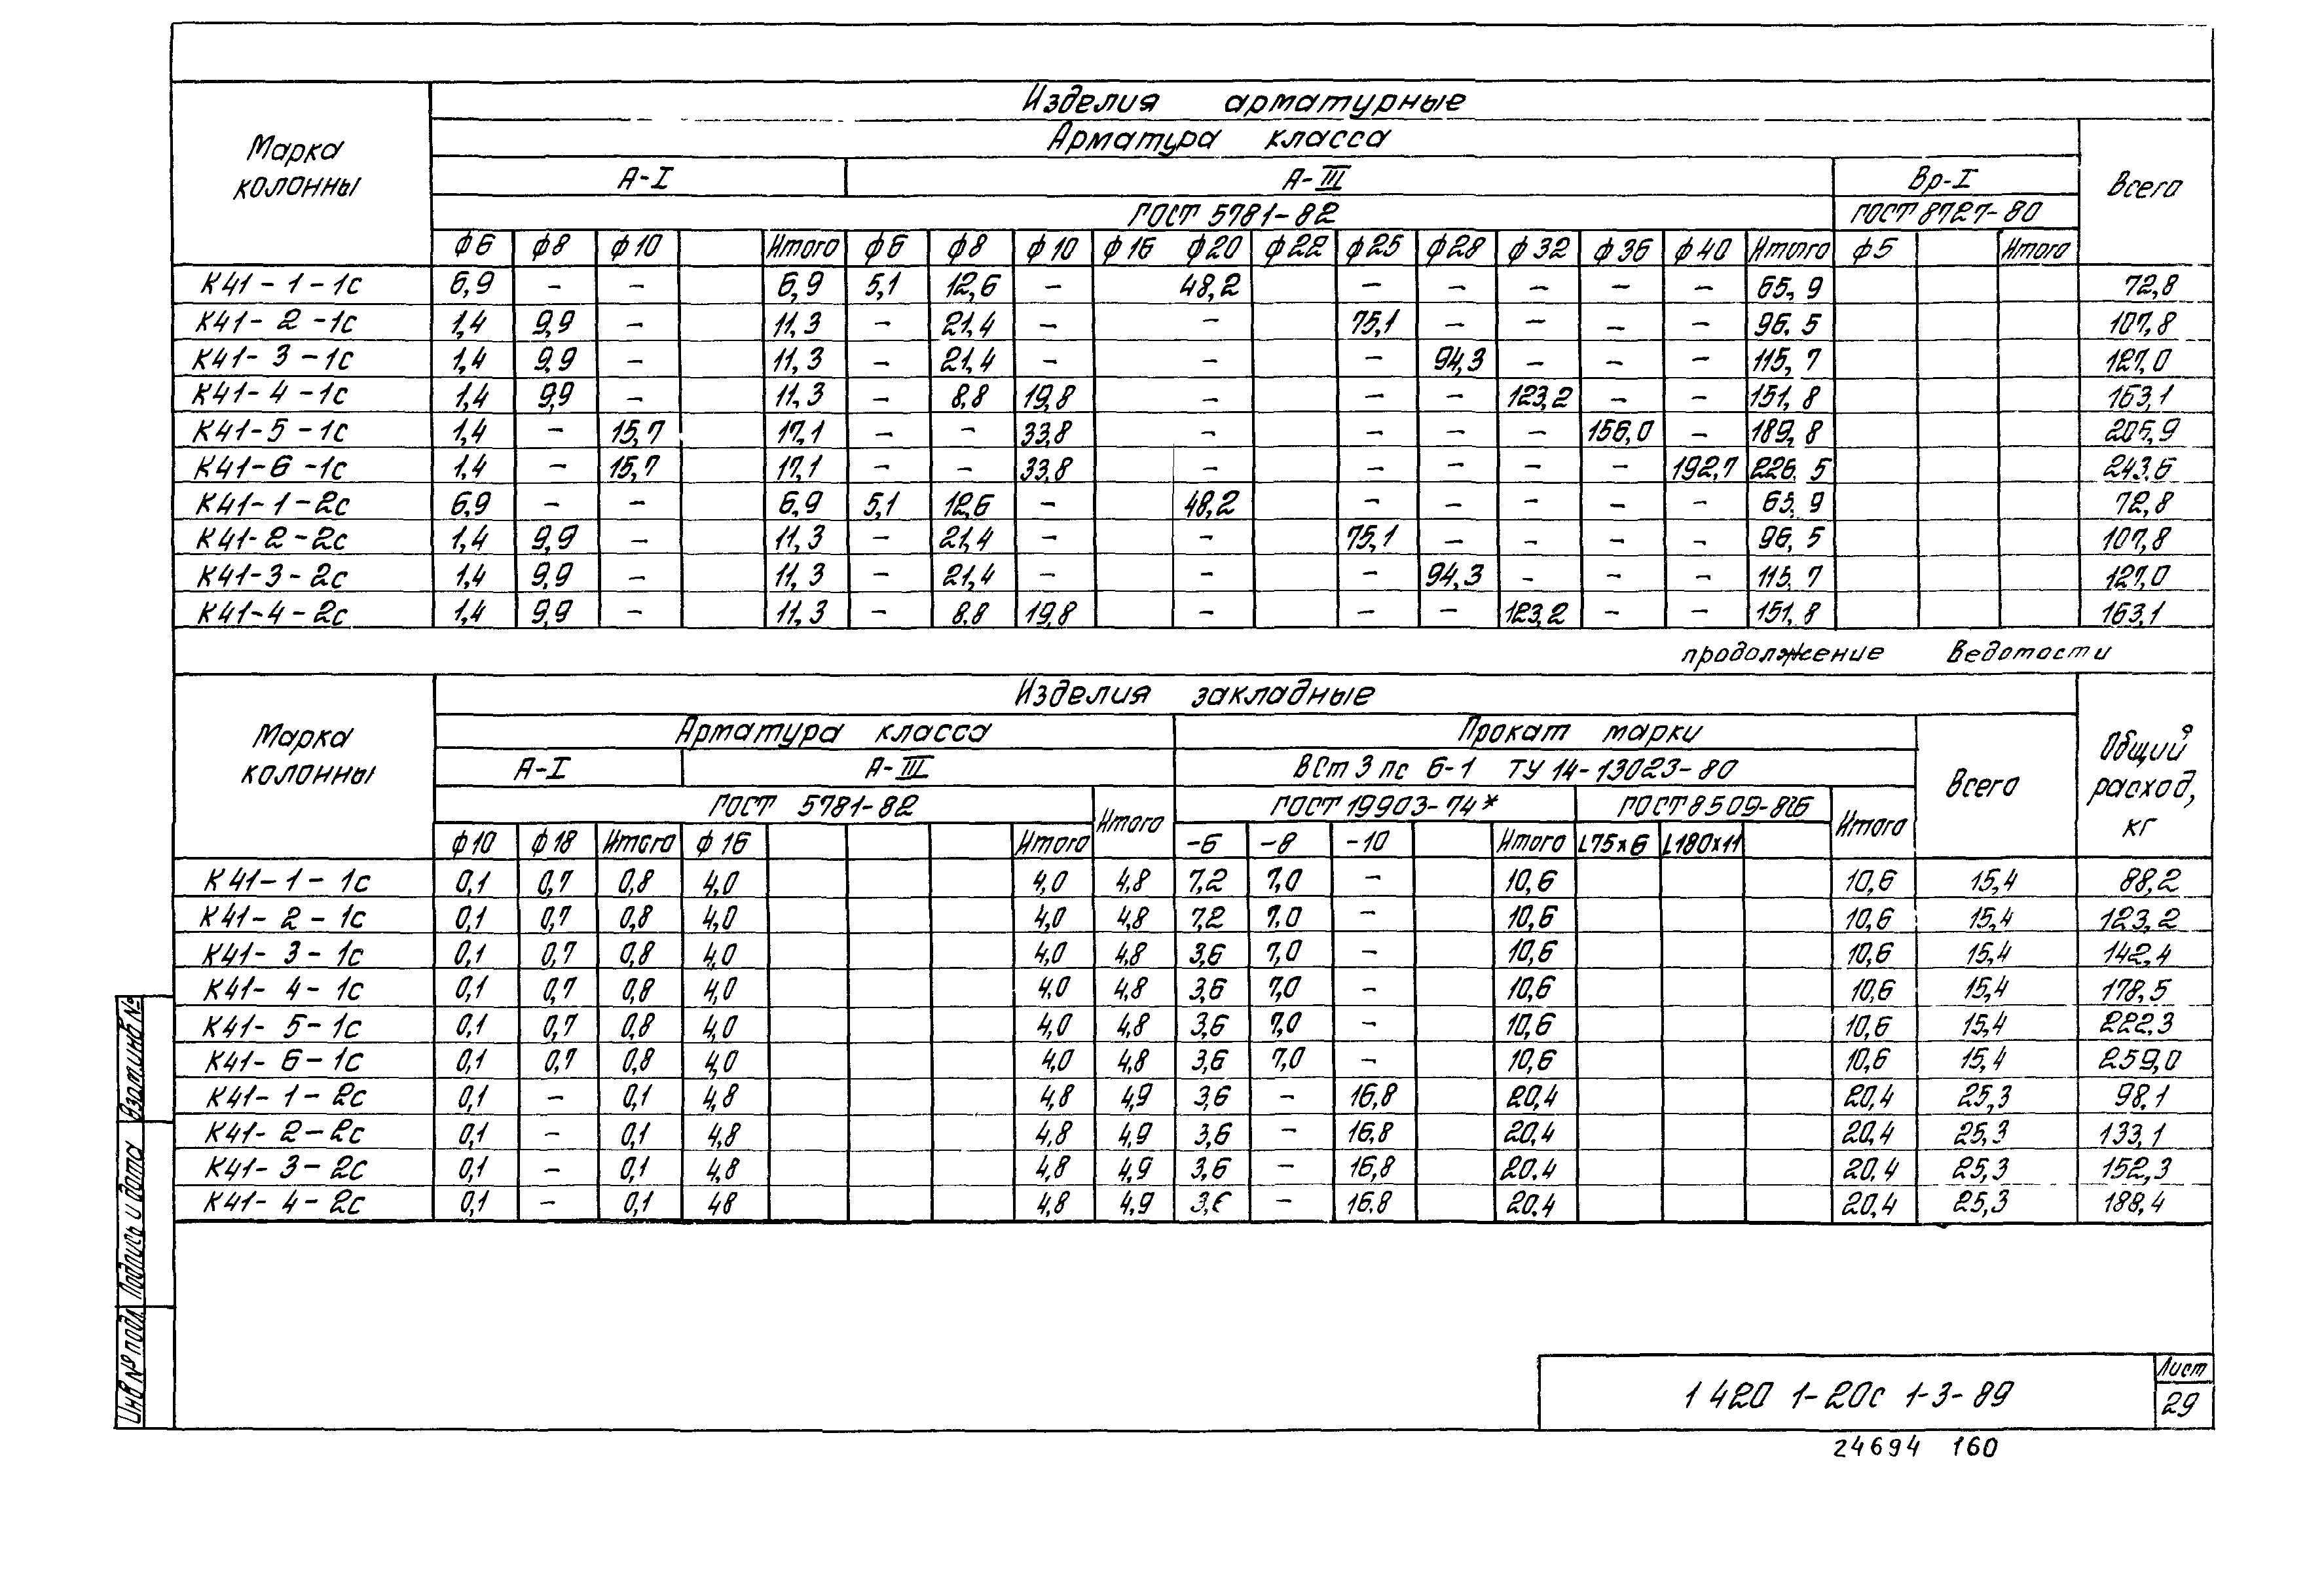 Изделия арматурные
Марка колонны
Арматура класса
Всего
А-I А-III Вр-I
ГОСТ 5781-82 ГОСТ 8727-80
ф6 ф8 ф10 Итого ф6 ф8 ф10 ф16 ф20 ф22 ф25 ф28 ф32 ф36 ф40 Итого ф5 Итого
К41-1-1с 6,9 - - 6,9 5,1 12,6 - 48,2 - - - - - 65,9 72,8
К41-2-1с 1,4 9,9 - 11,3 - 21,4 - - 75,1 - - - - 96.5 107,8
К41-3-1с 1,4 9,9 - 11,3 - 21,4 - - - 94,3 - - - 115,7 127,0
К41-4-1с 1,4 9,9 - 11,3 - 8,8 19,8 - - - 123,2 - - 151,8 163,1
К41-5-1с 1,4 - 15,7 17,1 - - 33,8 - - - - 156,0 - 189,8 206,9
К41-6-1с 1,4 - 15,7 17,1 - - 33,8 - - - - - 192,7 226.5 243.6
К41-1-2с 6,9 - - 6,9 5,1 12,6 - 48,2 - - - - - 65.9 72,8
К41-2-2с 1,4 9,9 - 11,3 - 21,4 - - 75,1 - - - - 96,5 107,8
К41-3-2с 1,4 9,9 - 11,3 - 21,4 - - - 94,3 - - - 115.7 127,0
К41-4-2с 1,4 9,9 - 11,3 - 8.8 19,8 - - - 123,2 - - 151,8 163,1
продолжение Ведомости
Изделия закладные
Марка колонны
Арматура класса Прокат марки
Всего
Общий расход, кг
А-I А-III ВСт 3 пс 6-1 ТУ 14-13023-80
ГОСТ 5781-82 Итого ГОСТ 19903-74* ГОСТ 8509-86 Итого
ф10 ф18 Итого ф16 Итого -6 -8 -10 Итого L75х6 L180х11
К41-1-1с 0,1 0,7 0,8 4,0 4,0 4,8 7,2 7,0 - 10,6 10,6 15,4 88,2
К41-2-1с 0,1 0,7 0,8 4,0 4,0 4,8 7,2 7,0 - 10,6 10,6 15,4 123,2
К41-3-1с 0,1 0,7 0,8 4,0 4,0 4,8 3,6 7,0 - 10,6 10,6 15,4 142,4
К41-4-1с 0,1 0,7 0,8 4,0 4,0 4,8 3,6 7,0 - 10,6 10,6 15,4 178,5
К41-5-1с 0,1 0,7 0,8 4,0 4,0 4,8 3,6 7,0 - 10,6 10,6 15,4 222.3
К41-6-1с 0,1 0,7 0,8 4,0 4,0 4,8 3,6 7,0 - 10,6 10,6 15,4 259,0
К41-1-2с 0,1 - 0,1 4,8 4,8 4,9 3,6 - 16,8 20,4 20,4 25,3 98.1
К41-2-2с 0,1 - 0,1 4,8 4,8 4,9 3,6 - 16,8 20,4 20,4 25,3 133,1
К41-3-2с 0,1 - 0,1 4,8 4,8 4,9 3,6 - 16,8 20.4 20,4 25,3 152,3
К41-4-2с 0,1 - 0,1 48 4,8 4,9 - 16.8 20.4 20,4 25,3 188,4
Взам.инв №
Подпись и дата
Инв № подл.
1 420 1-20с 1-3-89
Лист
29
24694 160